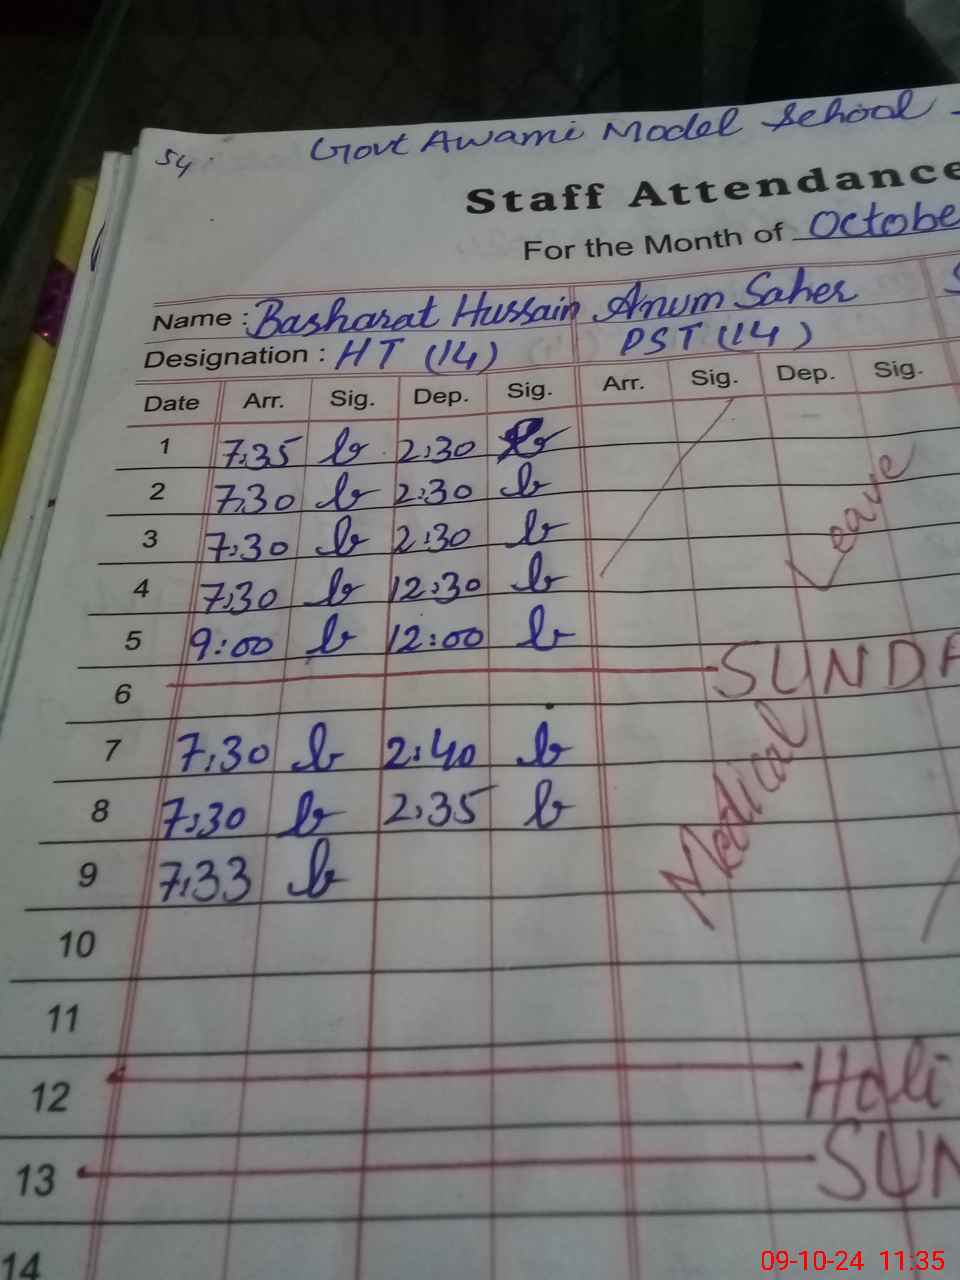 54.
Govt Awami Model School -
Staff Attendance
For the Month of October
Name : Basharat Hussain Anum Saher
Designation : HT (14) PST (14)
Date Arr. Sig. Dep. Sig. Arr. Sig. Dep. Sig.
1 7:35 2:30
2 7:30 2:30
3 7:30 2:30
4 7:30 12:30
5 9:00 12:00
6 SUNDA
7 7:30 2:40
8 7:30 2:35
9 7:33
Medical Leave
10
11
12 Holi
13 SUN
14
09-10-24 11:35